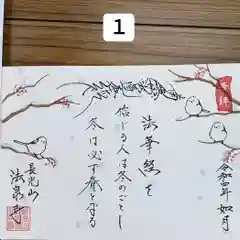 1
奉拝
令和四年 如月
法華経を
信じる人は冬のごとし
冬は必ず春となる
長光山
法泉寺